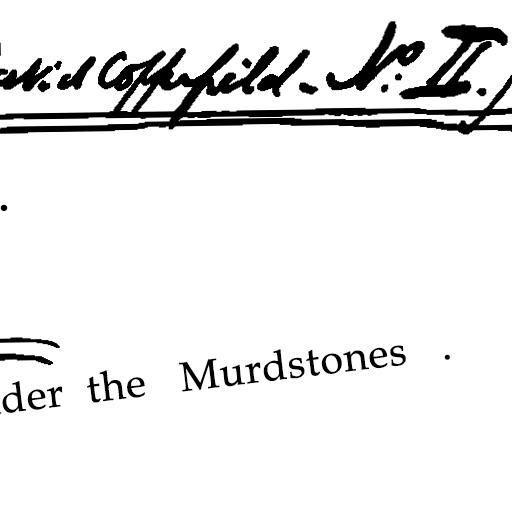 David Copperfield - No. II.
.
der the Murdstones .